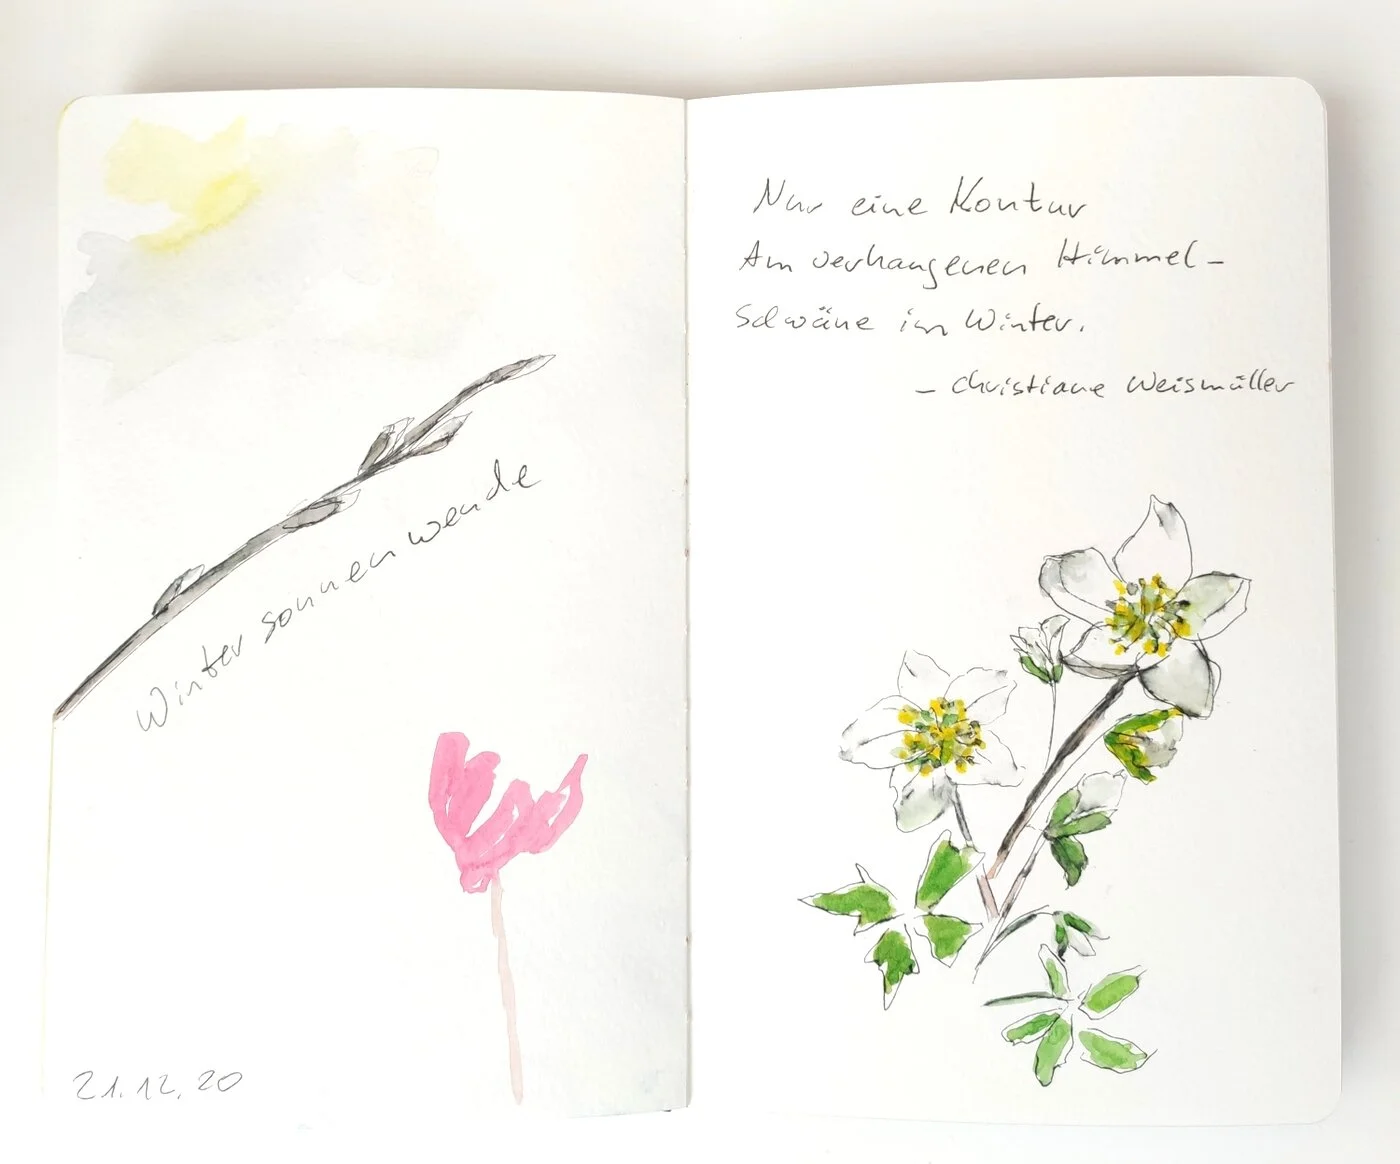 Winter sonnenwende
21.12.20
Nur eine Kontur
Am verhangenen Himmel –
Schwäne im Winter.
– Christiane Weismüller